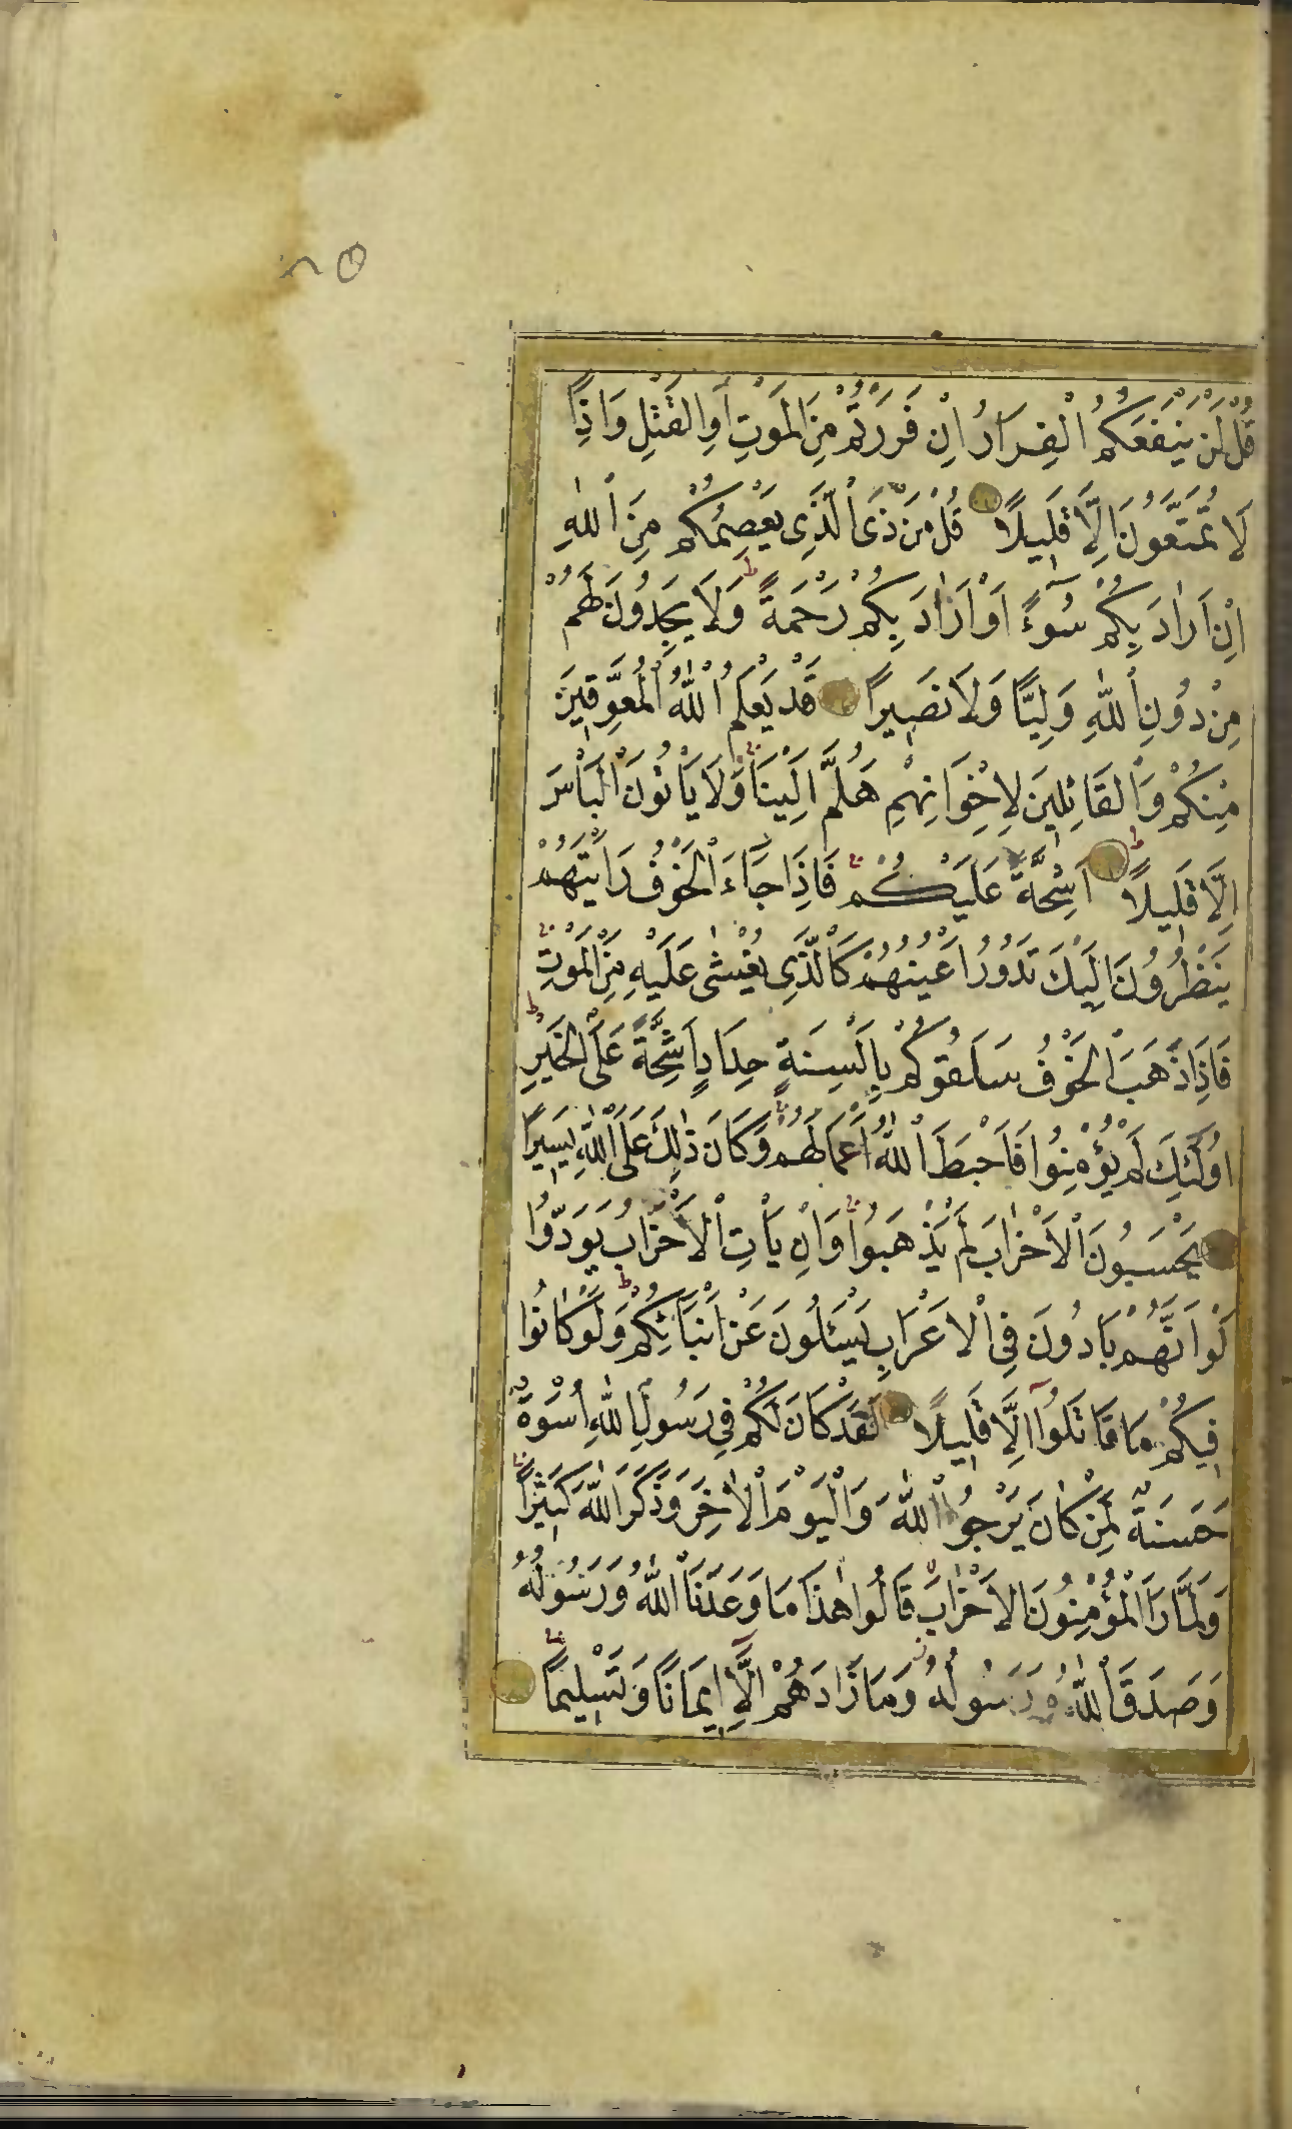 قُلْ لَنْ يَنْفَعَكُمُ الْفِرَارُ اِنْ فَرَرْتُمْ مِنَ الْمَوْتِ اَوِ الْقَتْلِ وَاِذًا
لَا تُمَتَّعُونَ اِلَّا قَلِيلًا قُلْ مَنْ ذَا الَّذِى يَعْصِمُكُمْ مِنَ اللّٰهِ
اِنْ اَرَادَ بِكُمْ سُوٓءًا اَوْ اَرَادَ بِكُمْ رَحْمَةً وَلَا يَجِدُونَ لَهُمْ
مِنْ دُونِ اللّٰهِ وَلِيًّا وَلَا نَصِيرًا قَدْ يَعْلَمُ اللّٰهُ الْمُعَوِّقِينَ
مِنْكُمْ وَالْقَائِلِينَ لِاِخْوَانِهِمْ هَلُمَّ اِلَيْنَا وَلَا يَاْتُونَ الْبَاْسَ
اِلَّا قَلِيلًا اَشِحَّةً عَلَيْكُمْ فَاِذَا جَٓاءَ الْخَوْفُ رَاَيْتَهُمْ
يَنْظُرُونَ اِلَيْكَ تَدُورُ اَعْيُنُهُمْ كَالَّذِى يُغْشٰى عَلَيْهِ مِنَ الْمَوْتِ
فَاِذَا ذَهَبَ الْخَوْفُ سَلَقُوكُمْ بِاَلْسِنَةٍ حِدَادٍ اَشِحَّةً عَلَى الْخَيْرِ
اُولٰٓئِكَ لَمْ يُؤْمِنُوا فَاَحْبَطَ اللّٰهُ اَعْمَالَهُمْ وَكَانَ ذٰلِكَ عَلَى اللّٰهِ يَسِيرًا
يَحْسَبُونَ الْاَحْزَابَ لَمْ يَذْهَبُوا وَاِنْ يَاْتِ الْاَحْزَابُ يَوَدُّوا
لَوْ اَنَّهُمْ بَادُونَ فِى الْاَعْرَابِ يَسْئَلُونَ عَنْ اَنْبَٓائِكُمْ وَلَوْ كَانُوا
فِيكُمْ مَا قَاتَلُٓوا اِلَّا قَلِيلًا لَقَدْ كَانَ لَكُمْ فِى رَسُولِ اللّٰهِ اُسْوَةٌ
حَسَنَةٌ لِمَنْ كَانَ يَرْجُوا اللّٰهَ وَالْيَوْمَ الْاٰخِرَ وَذَكَرَ اللّٰهَ كَثِيرًا
وَلَمَّا رَاَ الْمُؤْمِنُونَ الْاَحْزَابَ قَالُوا هٰذَا مَا وَعَدَنَا اللّٰهُ وَرَسُولُهُ
وَصَدَقَ اللّٰهُ وَرَسُولُهُ وَمَا زَادَهُمْ اِلَّٓا اِيمَانًا وَتَسْلِيمًا